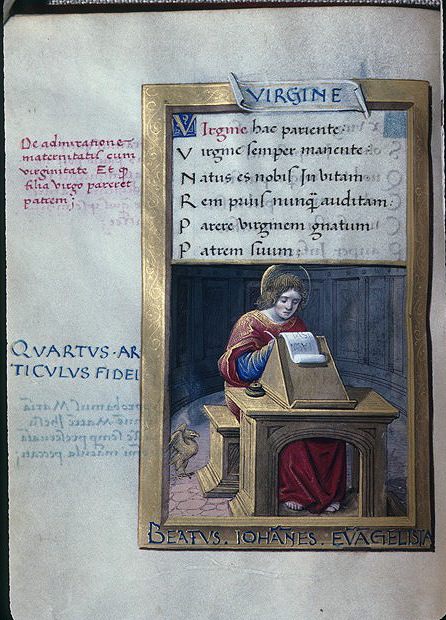 VIRGINE
De admiratione
maternitatis cum
virginitate Et q̄
filia virgo pareret
patrem:
VIrgine hac pariente:
Virgine semper manente
Natus es nobis In vitam
Rem prius nunq̄ auditam
Parere virginem gnatum
Patrem suum:
QVARTVS·AR
TICVLVS FIDEI
BEATVS. IOHAÑES. EVAGELISTA